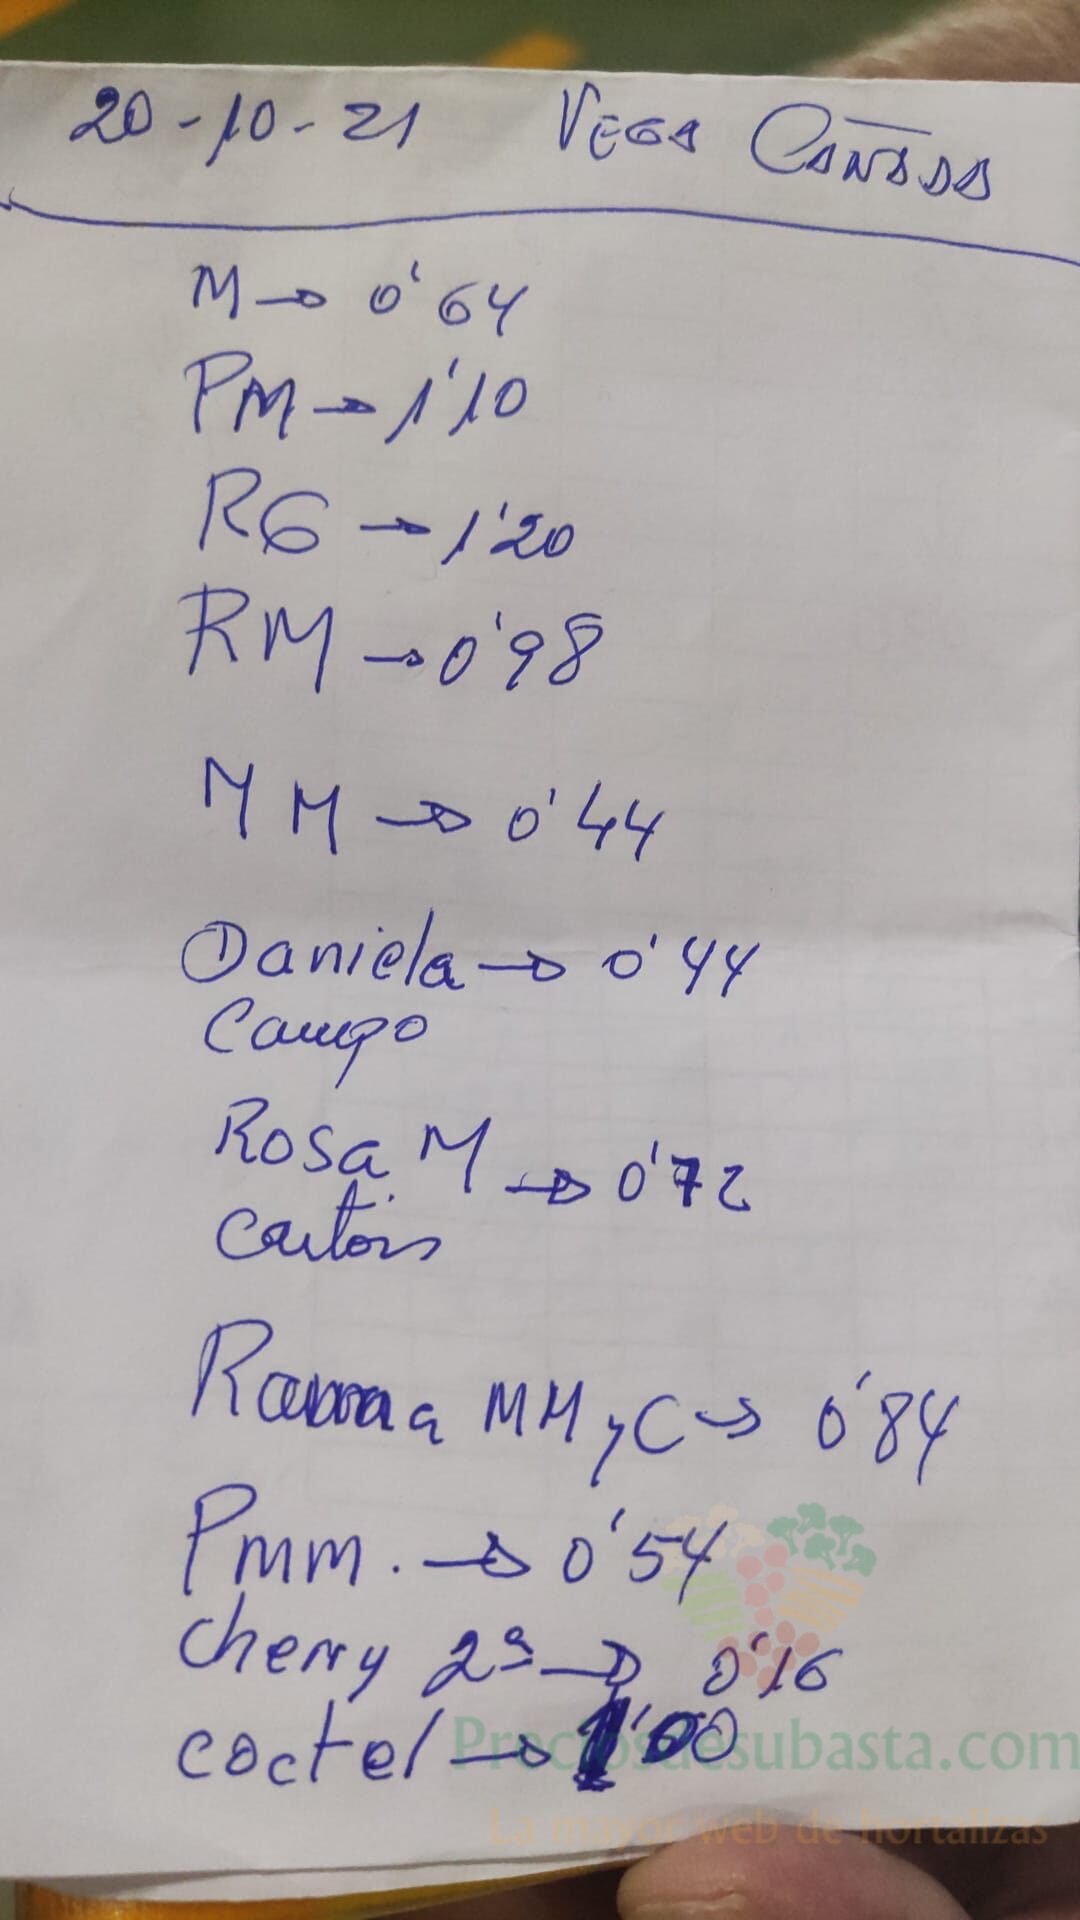 20-10-21 VEGA CAÑADA
M → 0'64
PM → 1'10
RG → 1'20
RM → 0'98
MM → 0'44
Daniela → 0'44
Campo
Rosa M → 0'72
Cartón
Rama MM y C → 0'84
Pmm. → 0'54
cherry 2ª → 0'16
coctel → 1'00
Preciosdesubasta.com
La mayor web de hortalizas